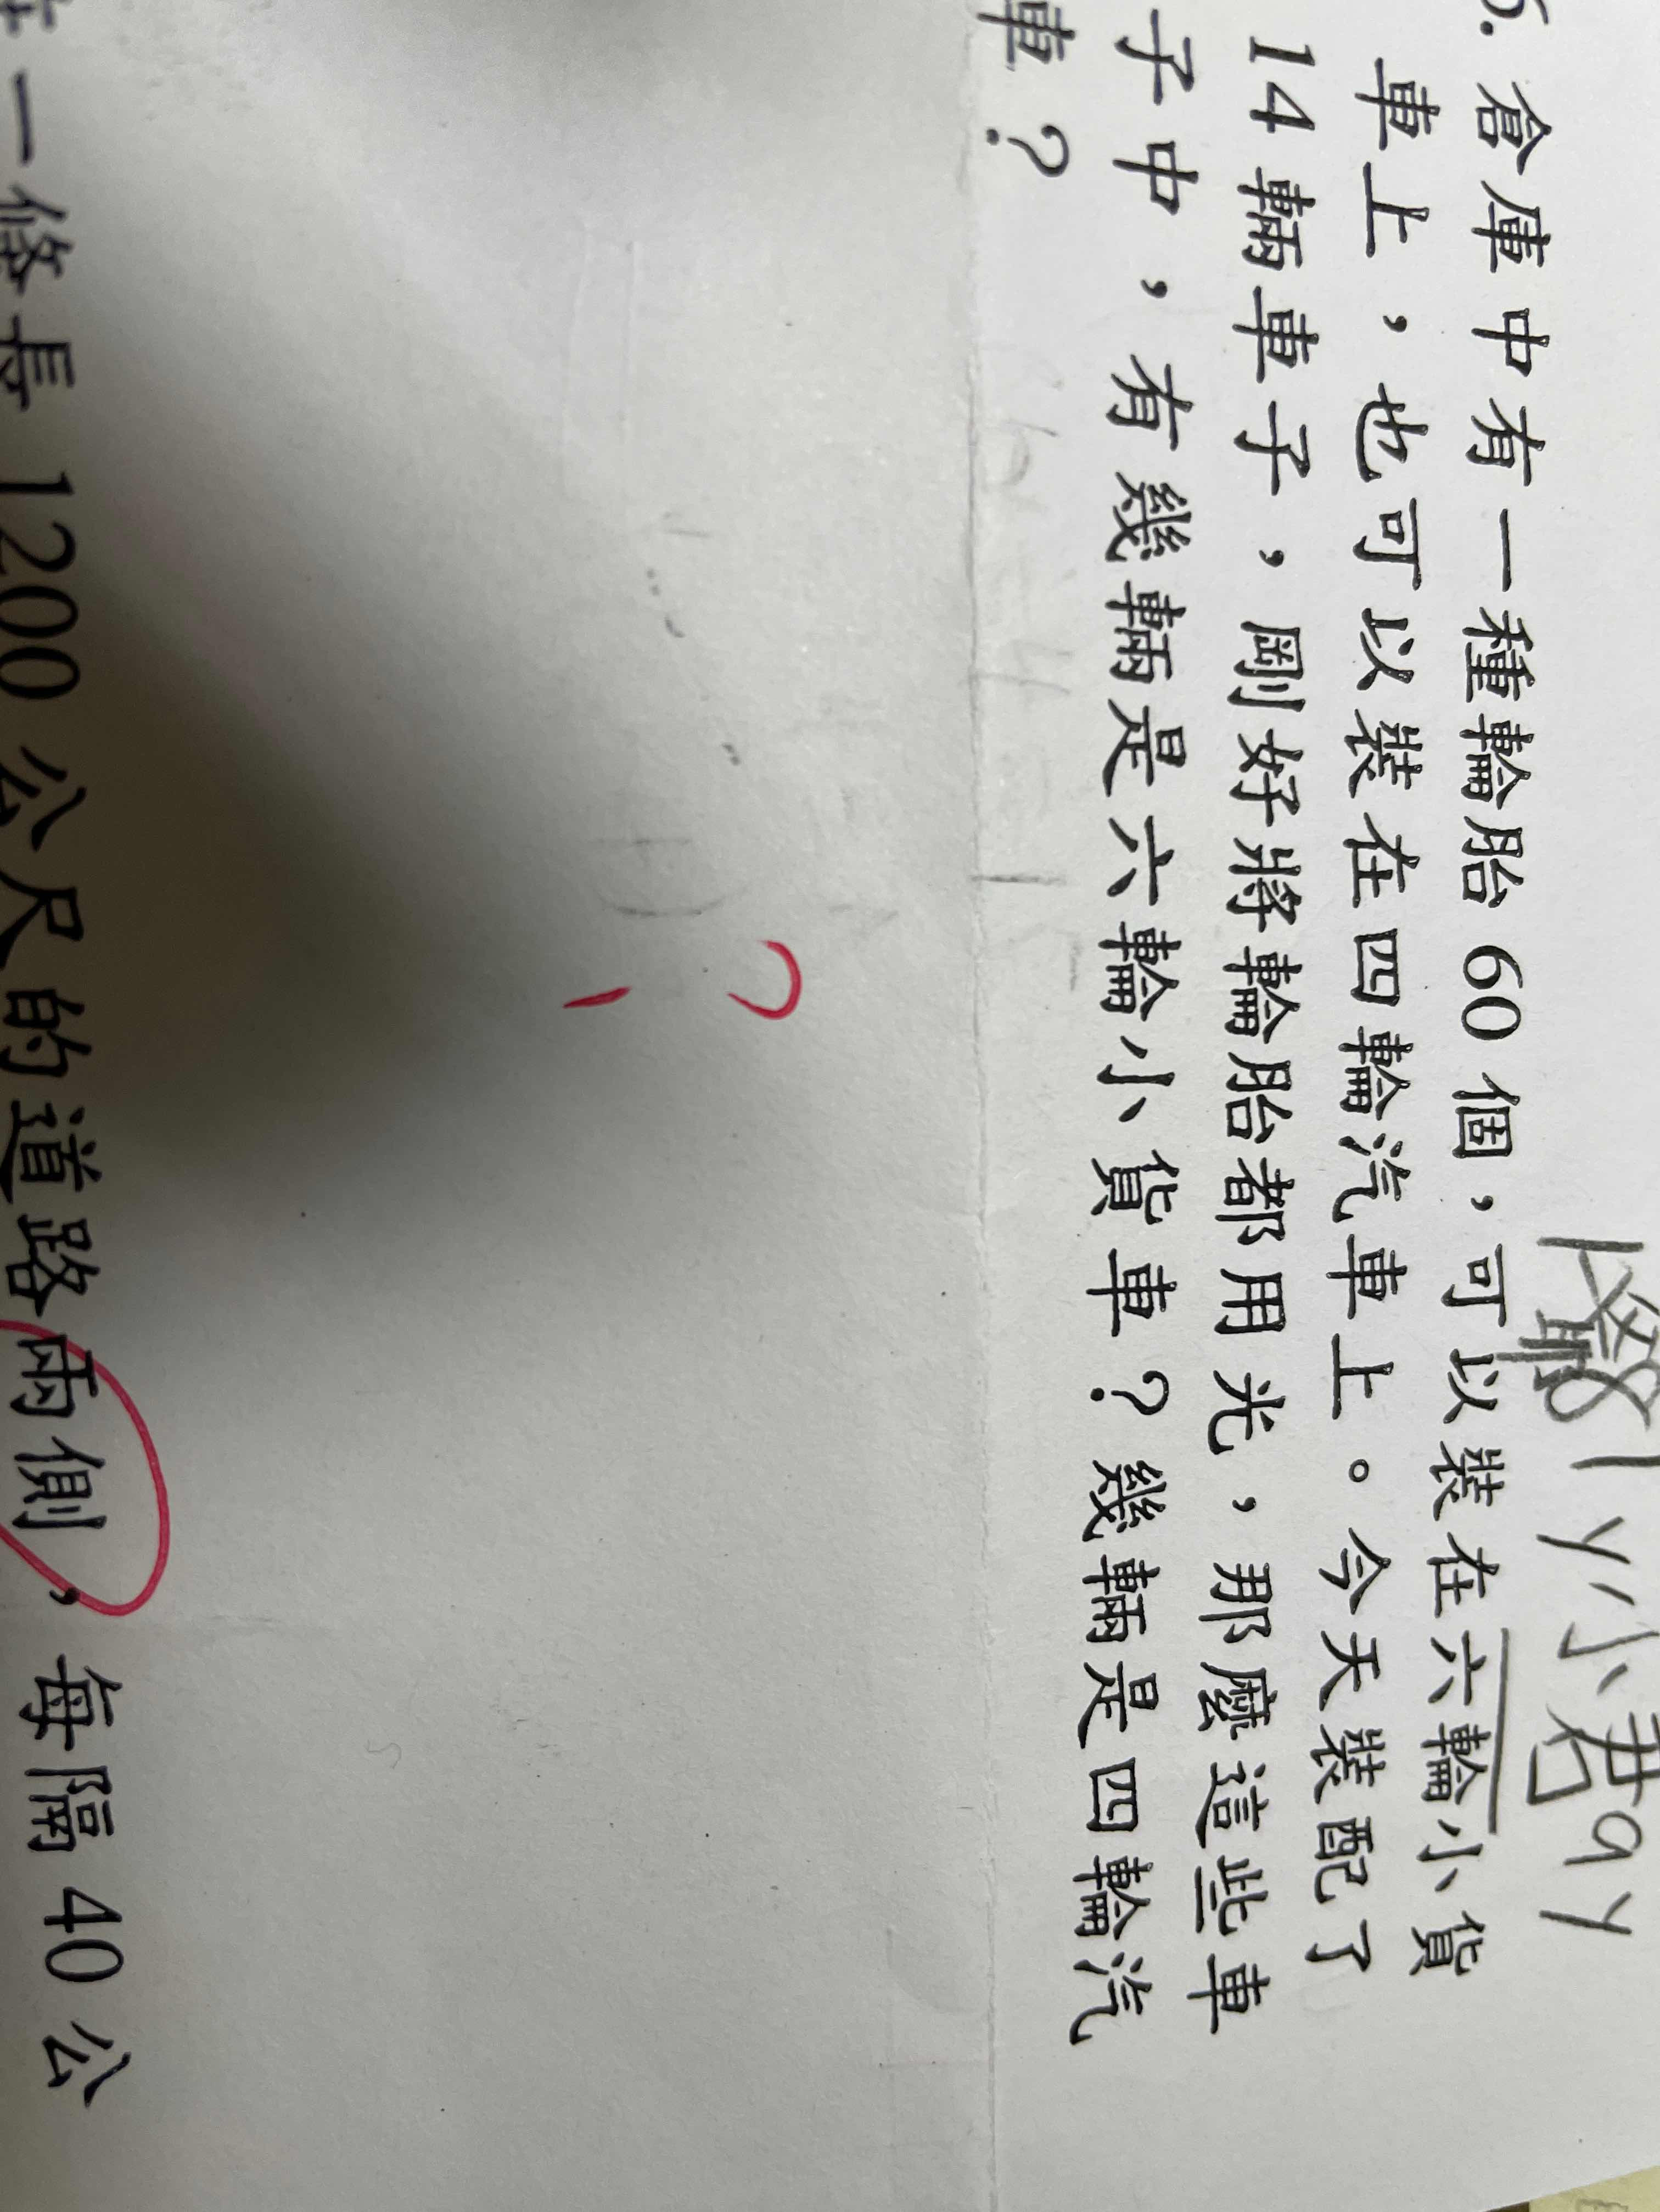 5. 倉庫中有一種輪胎 60 個，可以裝在六輪小貨
車上，也可以裝在四輪汽車上。今天裝配了
14 輛車子，剛好將輪胎都用光，那麼這些車
子中，有幾輛是六輪小貨車？幾輛是四輪汽
車？
一條長 1200 公尺的道路兩側，每隔 40 公